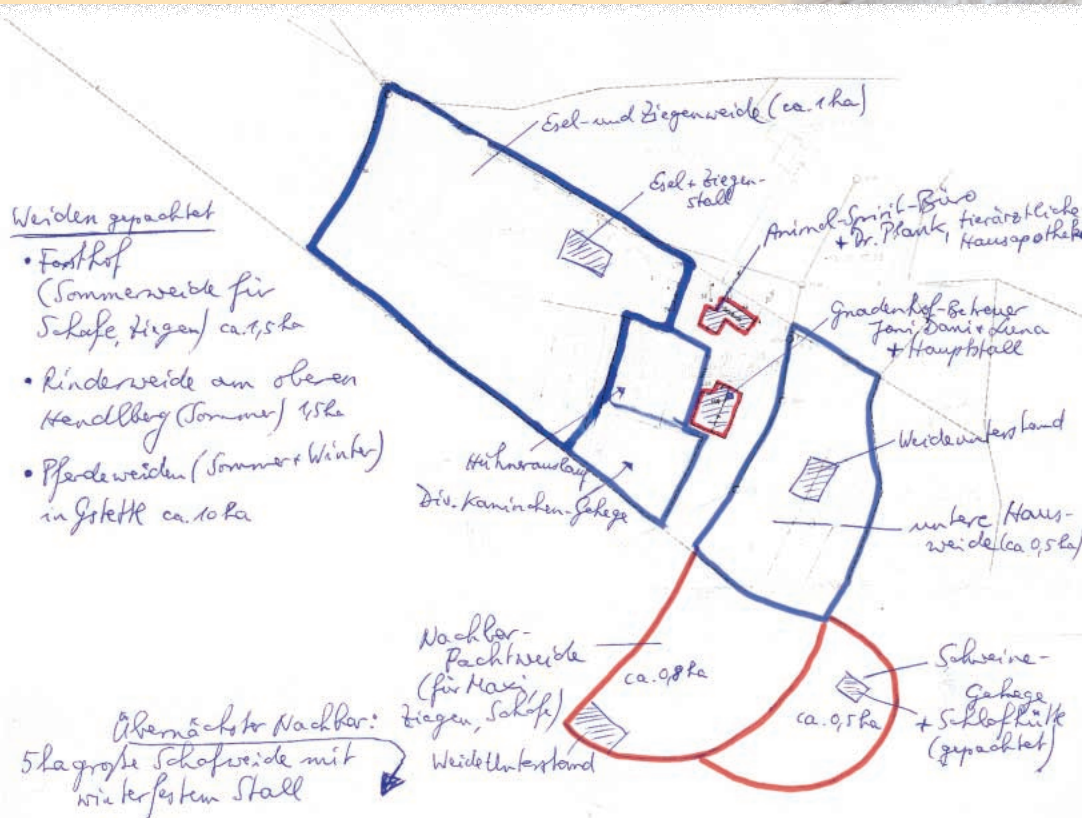 Esel- und Ziegenweide (ca. 1 ha)
Esel + Ziegen-
stall
Animal-Spirit-Büro
+ Dr. Plank, tierärztliche
Hausapotheke
Gnadenhof-Betreuer
Joni, Dani + Luna
+ Hauptstall
Weiden gepachtet
• Forsthof
(Sommerweide für
Schafe, Ziegen) ca. 1,5 ha
• Rinderweide am oberen
Hendlberg (Sommer) 1,5 ha
• Pferdeweiden (Sommer + Winter)
in Gstettl ca. 10 ha
Hühnerauslauf
Div. Kaninchen-Gehege
Weideunterstand
untere Haus-
weide (ca. 0,5 ha)
Nachbar-
Pachtweide
(für Maxi,
Ziegen, Schafe)
ca. 0,8 ha
Weideunterstand
Schweine-
Gehege
+ Schlafhütte
(gepachtet)
ca. 0,5 ha
Übernächster Nachbar:
5 ha große Schafweide mit
winterfestem Stall